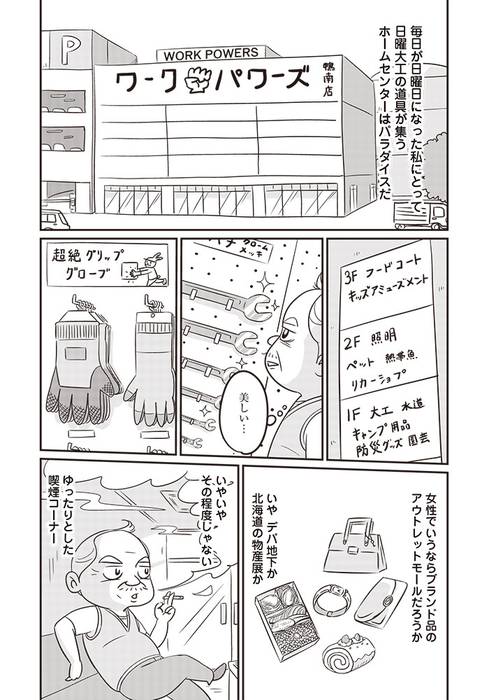 毎日が日曜日になった私にとって
日曜大工の道具が集う
ホームセンターはパラダイスだ
P
WORK POWERS
ワークパワーズ
鴨南店
3F フードコート
キッズアミューズメント
2F 照明
ペット 熱帯魚
リカーショップ
1F 大工 水道
キャンプ用品
防災グッズ 園芸
クローム
メッキ
美しい…
超絶グリップ
グローブ
女性でいうならブランド品の
アウトレットモールだろうか
いや デパ地下か
北海道の物産展か
いやいや
その程度じゃない
ゆったりとした
喫煙コーナー